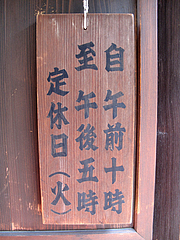 自午前十時
至午後五時
定休日(火)